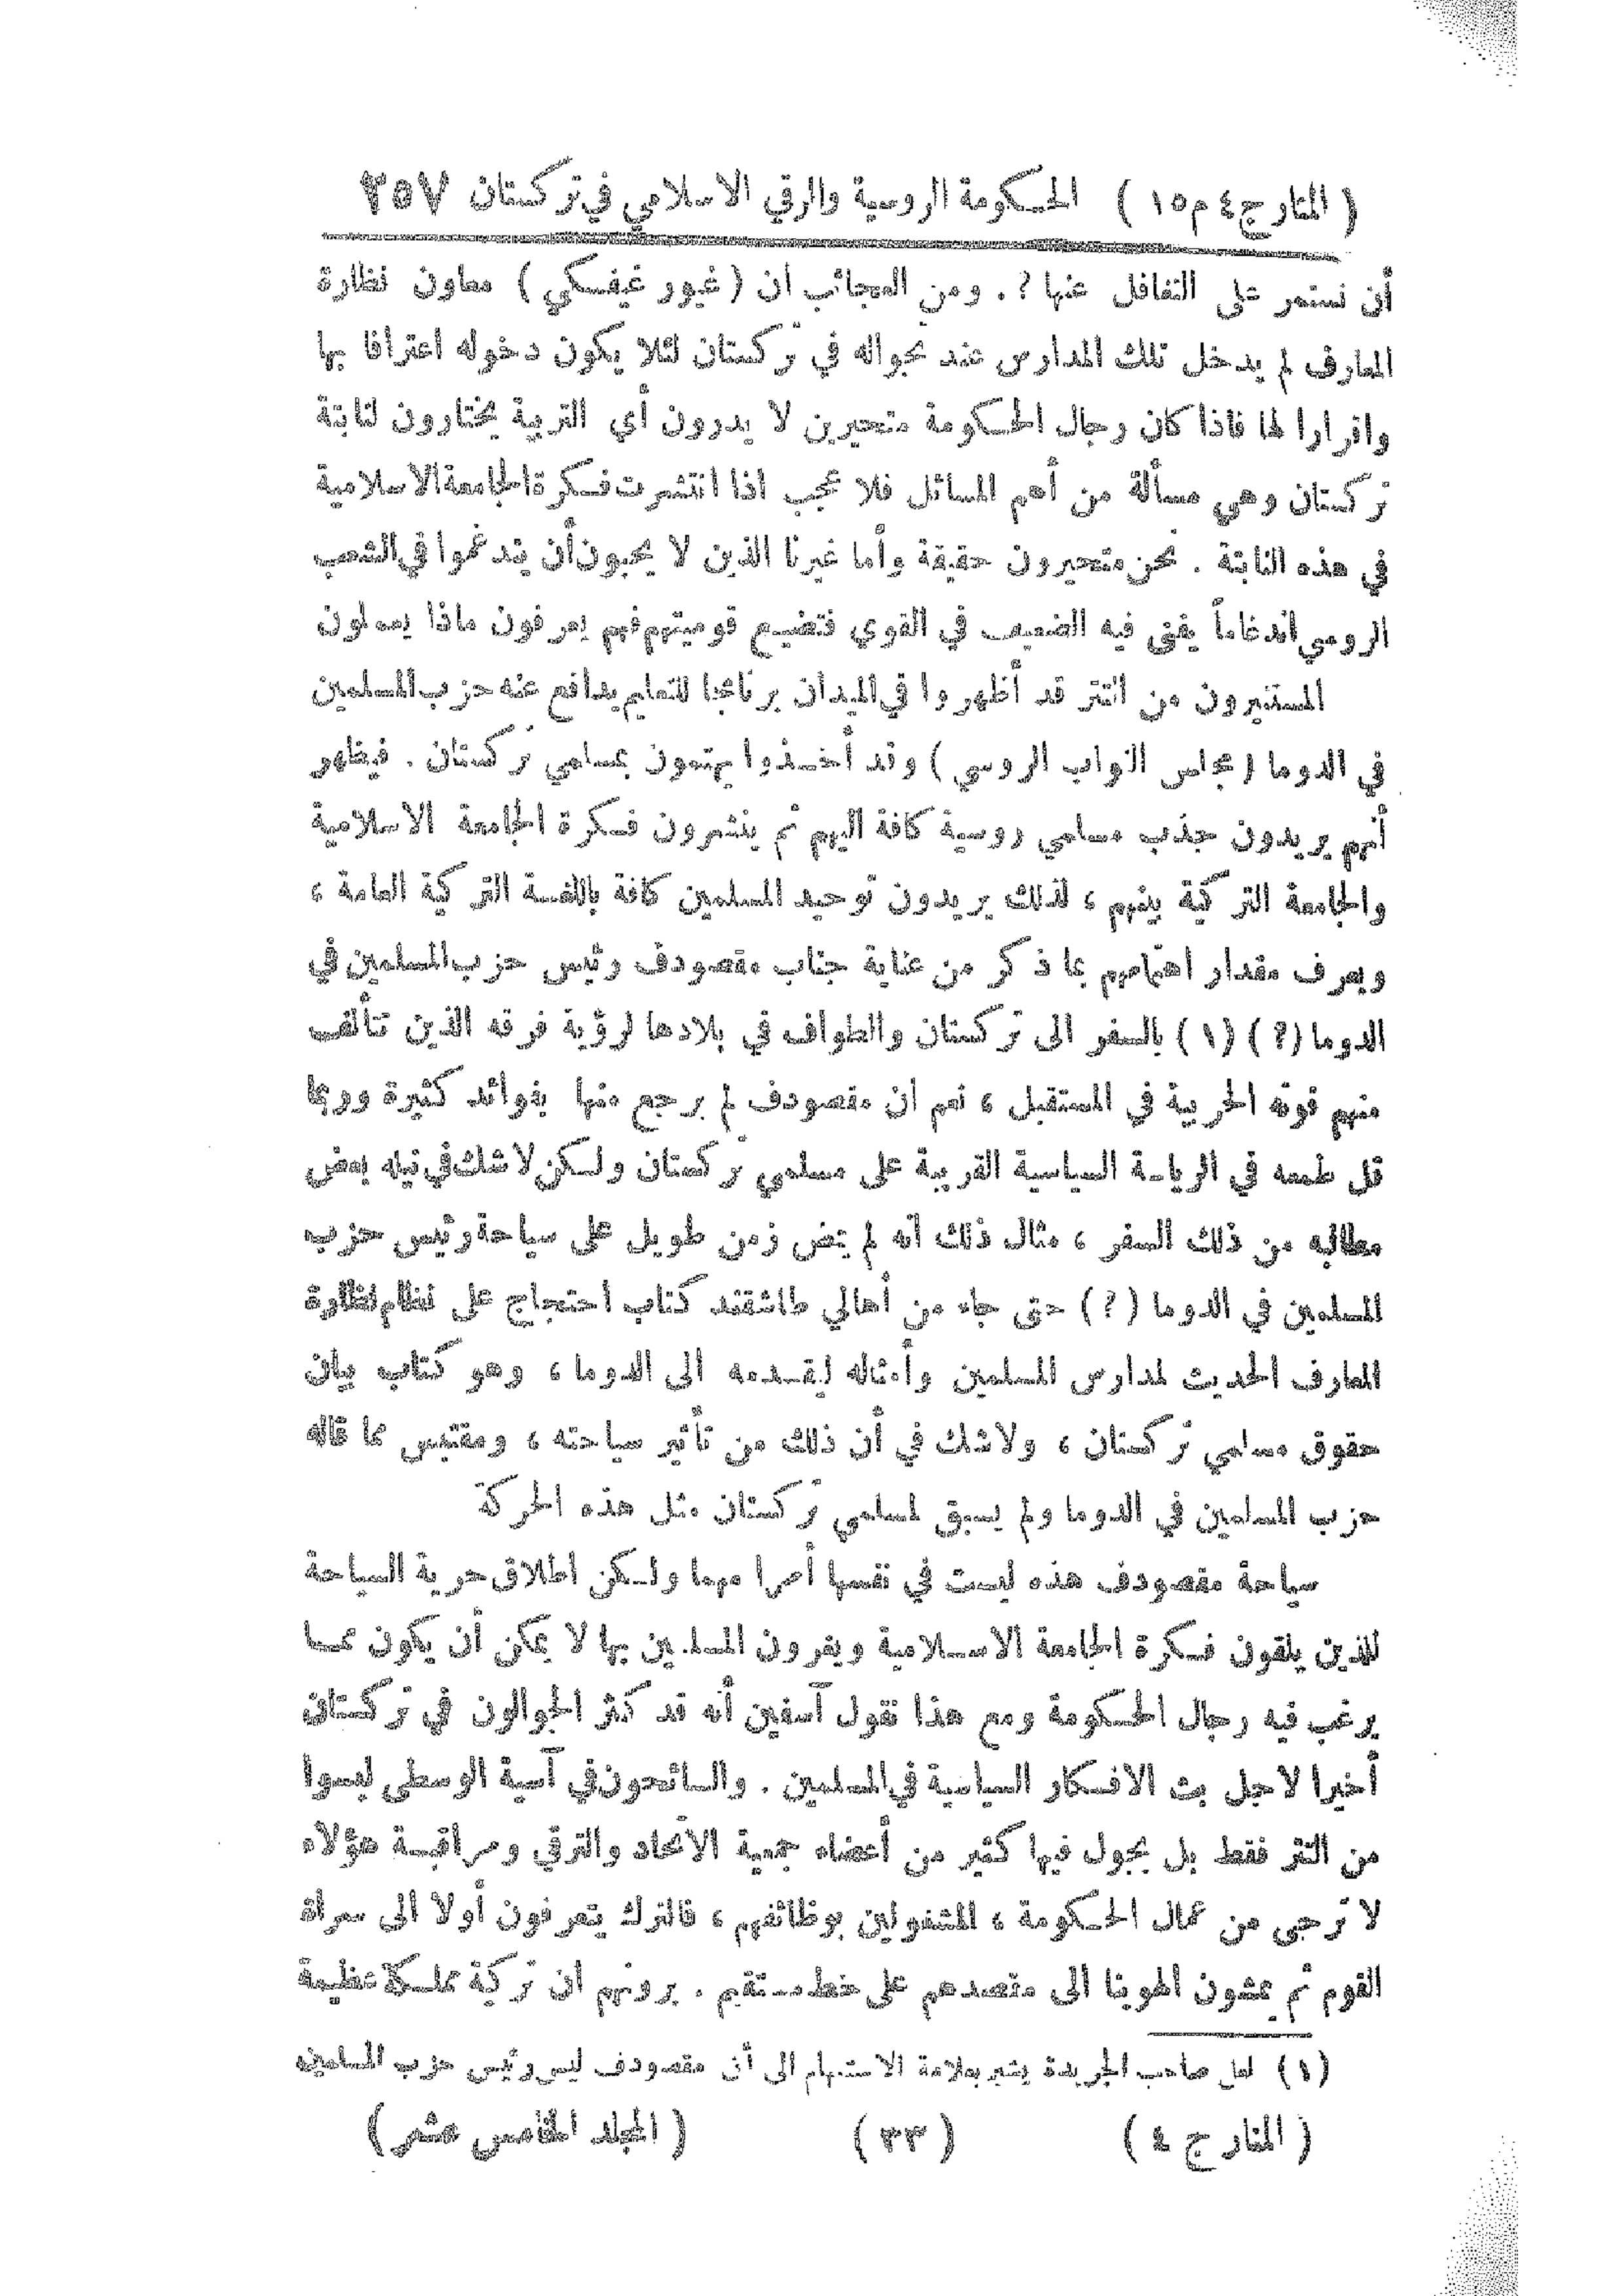 ( المنار ج٤ م١٥ ) الحكومة الروسية والرقي الاسلامي في تركستان ٢٥٧
أن نستمر على التغافل عنها ؟ . ومن العجائب ان ( غيور غيفسكي ) معاون نظارة
المعارف لم يدخل تلك المدارس عند تجواله في تركستان لئلا يكون دخوله اعترافا بها
واقرارا لها فاذا كان رجال الحكومة متحيرين لا يدرون أي التربية يختارون لنابتة
تركستان وهي مسألة من أهم المسائل فلا عجب اذا انتشرت فكرة الجامعة الاسلامية
في هذه النابتة . نحن متحيرون حقيقة وأما غيرنا الذين لا يحبون أن يندغموا في الشعب
الروسي اندغاماً يفنى فيه الضعيف في القوي فتضيع قوميتهم فهم يعرفون ماذا يعملون
المستنيرون من التتر قد أظهروا في الميدان برنامجا للتعليم يدافع عنه حزب المسلمين
في الدوما ( مجلس النواب الروسي ) وقد أخذوا يهتمون بمسلمي تركستان . فيظهر
أنهم يريدون جذب مسلمي روسية كافة اليهم ثم ينشرون فكرة الجامعة الاسلامية
والجامعة التركية بينهم ، لذلك يريدون توحيد المسلمين كافة باللغة التركية العامة ،
ويعرف مقدار اهتمامهم بما ذكر من عناية جناب مقصودف رئيس حزب المسلمين في
الدوما (؟) (١) بالسفر الى تركستان والطواف في بلادها لرؤية فرقه الذين تتألف
منهم قوته الحربية في المستقبل ، نعم ان مقصودف لم يرجع منها بفوائد كثيرة وربما
قل طمعه في الرياسة السياسية القريبة على مسلمي تركستان ولكن لاشك في نيله بعض
مطالبه من ذلك السفر ، مثال ذلك أنه لم يمض زمن طويل على سياحة رئيس حزب
المسلمين في الدوما (؟) حتى جاء من أهالي طاشقند كتاب احتجاج على نظام نظارة
المعارف الحديث لمدارس المسلمين وأمثاله ليقدمه الى الدوما ، وهو كتاب بيان
حقوق مسلمي تركستان ، ولاشك في أن ذلك من تأثير سياحته ، ومقتبس مما قاله
حزب المسلمين في الدوما ولم يسبق لمسلمي تركستان مثل هذه الحركة
سياحة مقصودف هذه ليست في نفسها أمرا مهما ولكن اطلاق حرية السياحة
للذين يلقون فكرة الجامعة الاسلامية ويغرون المسلمين بها لا يمكن أن يكون مما
يرغب فيه رجال الحكومة ومع هذا نقول آسفين أنه قد كثر الجوالون في تركستان
أخيرا لاجل بث الافكار السياسية في المسلمين . والسائحون في آسية الوسطى ليسوا
من التتر فقط بل يجول فيها كثير من أعضاء جمعية الاتحاد والترقي ومراقبة هؤلاء
لا ترجى من عمال الحكومة ، المشغولين بوظائفهم ، فالترك يتعرفون أولا الى سراة
القوم ثم يمشون الهوينا الى مقصدهم على خط مستقيم . يرونهم ان تركية مملكة عظيمة
(١) لعل صاحب الجريدة يشير بعلامة الاستفهام الى أن مقصودف ليس رئيس حزب المسلمين
( المنار ج ٤ ) ( ٣٣ ) ( المجلد الخامس عشر )